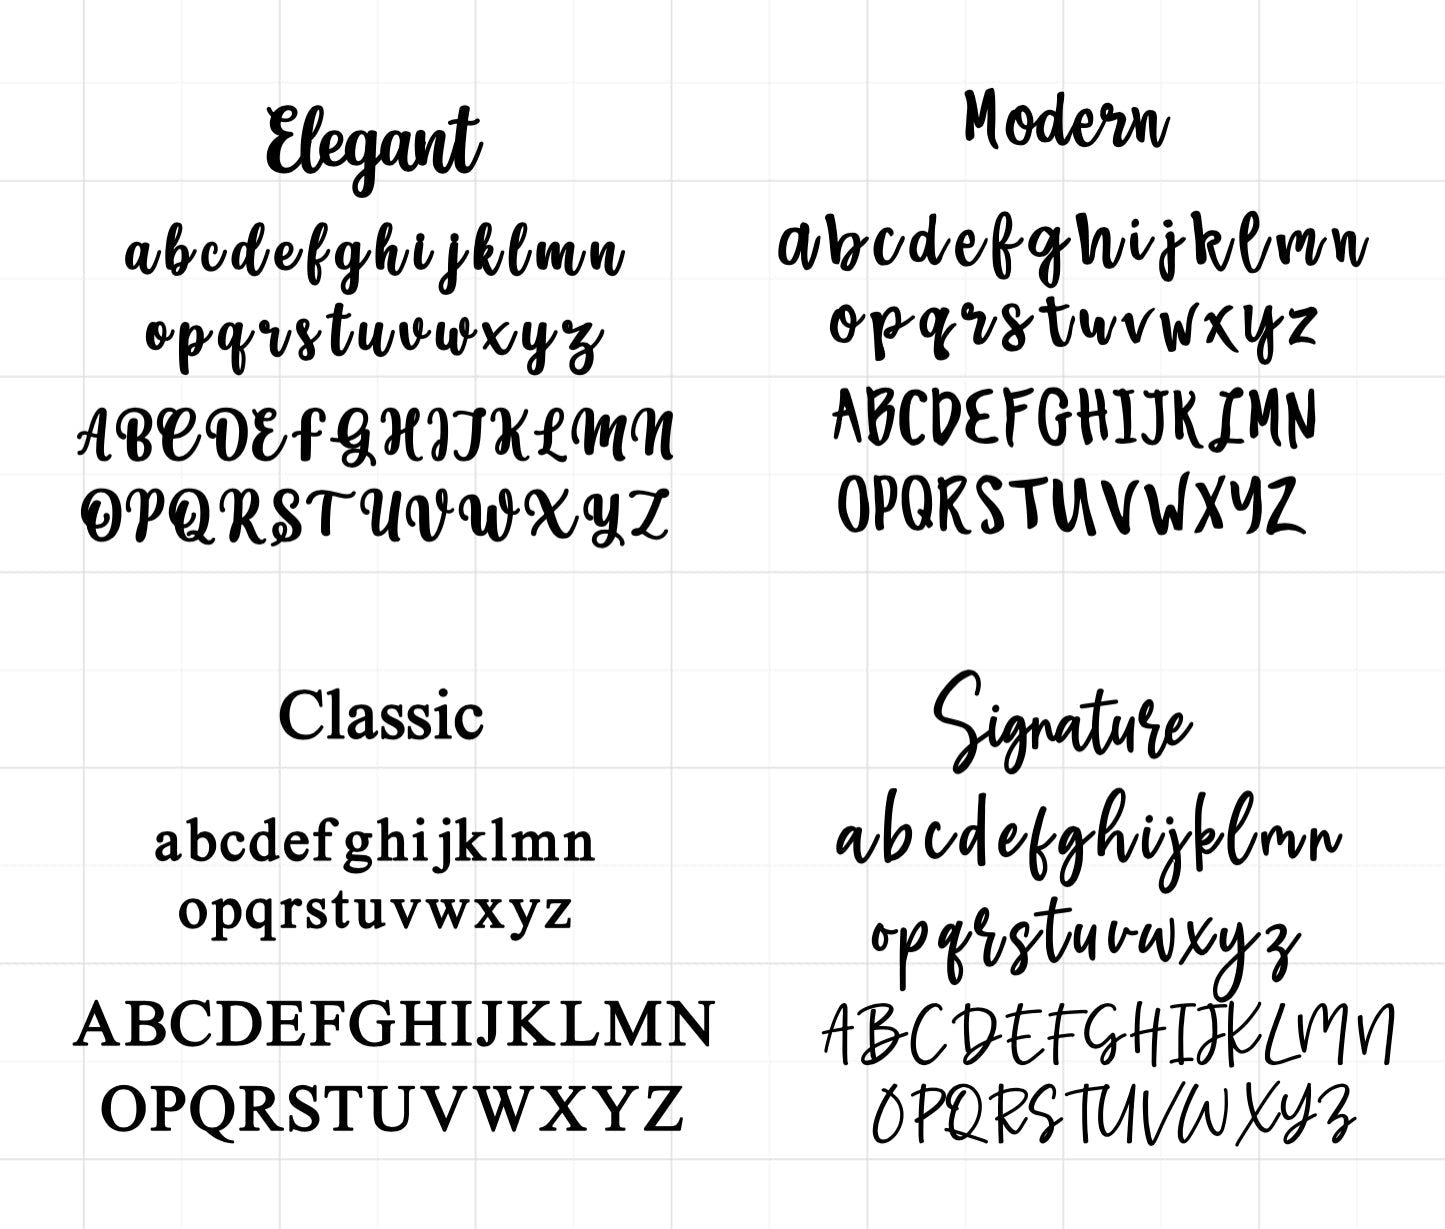 Elegant
abcdefghijklmn
opqrstuvwxyz
ABCDEFGHIJKLMN
OPQRSTUVWXYZ
Modern
abcdefghijklmn
opqrstuvwxyz
ABCDEFGHIJKLMN
OPQRSTUVWXYZ
Classic
abcdefghijklmn
opqrstuvwxyz
ABCDEFGHIJKLMN
OPQRSTUVWXYZ
Signature
abcdefghijklmn
opqrstuvwxyz
ABCDEFGHIJKLMN
OPQRSTUVWXYZ